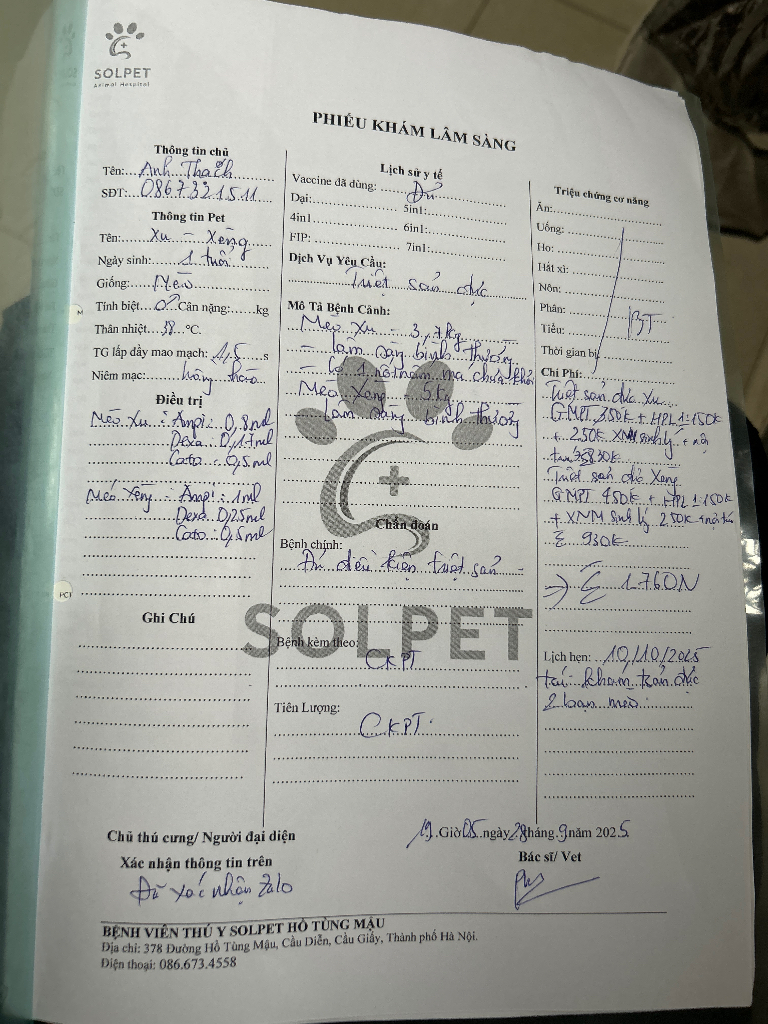 SOLPET
Animal Hospital
PHIẾU KHÁM LÂM SÀNG
Thông tin chủ
Tên: Anh Thạch
SĐT: 0867321511
Thông tin Pet
Tên: Xu - Xẻng
Ngày sinh: 1 tuổi
Giống: Mèo
Tính biệt ♂ Cân nặng: kg
Thân nhiệt: 38 °C.
TG lấp đầy mao mạch: 1,5 s
Niêm mạc: hồng hào
Điều trị
Mèo Xu: Ampi: 0,8ml
Dexa: 0,17ml
Cato: 0,5ml
Mèo Xẻng: Ampi: 1ml
Dexa: 0,25ml
Cato: 0,5ml
Ghi Chú
Lịch sử y tế
Vaccine đã dùng: Đủ
Dại: 5in1:
4in1 6in1:
FIP: 7in1:
Dịch Vụ Yêu Cầu:
Triệt sản đực
Mô Tả Bệnh Cảnh:
Mèo Xu - 3,7kg
- lâm sàng bình thường
- Có 1 nốt nấm má chưa khỏi
Mèo Xẻng - 5kg
Lâm sàng bình thường
Chẩn đoán
Bệnh chính:
Đủ điều kiện triệt sản
Bệnh kèm theo:
CKPT
Tiên Lượng:
CKPT
Triệu chứng cơ năng
Ăn:
Uống:
Ho:
Hắt xì:
Nôn:
Phân: BT
Tiểu:
Thời gian bị
Chi Phí:
Triệt sản đực Xu
GMPT 350K + HPL1: 150K
+ 250K XNM sinh lý +
830K
Triệt sản đực Xẻng
GMPT 450K + HPL1: 150K
+ XNM sinh lý 250K +
Σ 930K
→ Σ 1.760N
Lịch hẹn: 10/10/2025
tái khám triệt sản đực
2 bạn mèo
19 Giờ 05 ngày 28 tháng 9 năm 2025
Chủ thú cưng/ Người đại diện
Xác nhận thông tin trên
Đã xác nhận Zalo
Bác sĩ/ Vet
SOLPET
BỆNH VIỆN THÚ Y SOLPET HỒ TÙNG MẬU
Địa chỉ: 378 Đường Hồ Tùng Mậu, Cầu Diễn, Cầu Giấy, Thành phố Hà Nội.
Điện thoại: 086.673.4558